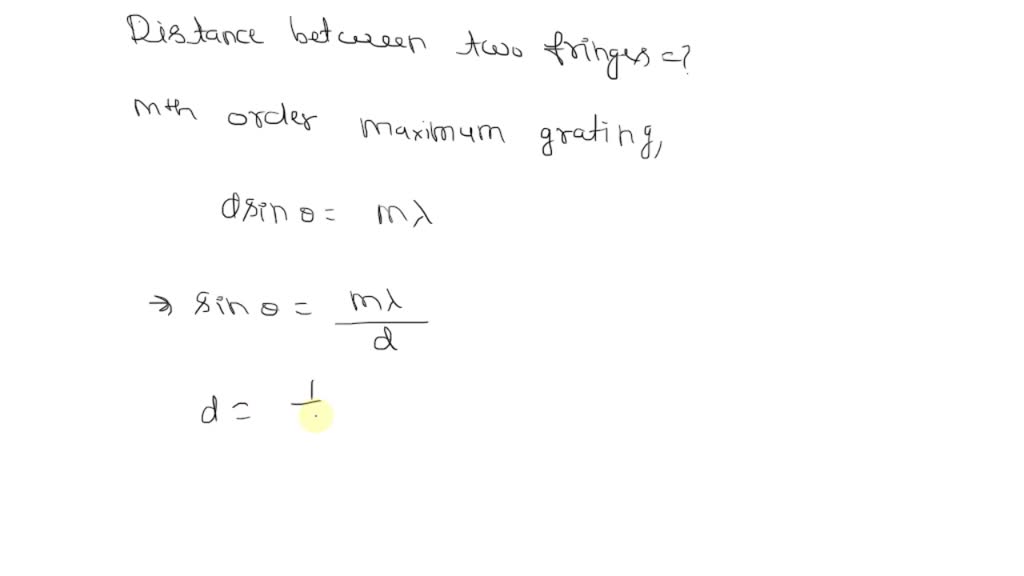 Distance between two fringes =?
mth order maximum grating,
dsin θ = mλ
⇒ sin θ = mλ/d
d = 1/